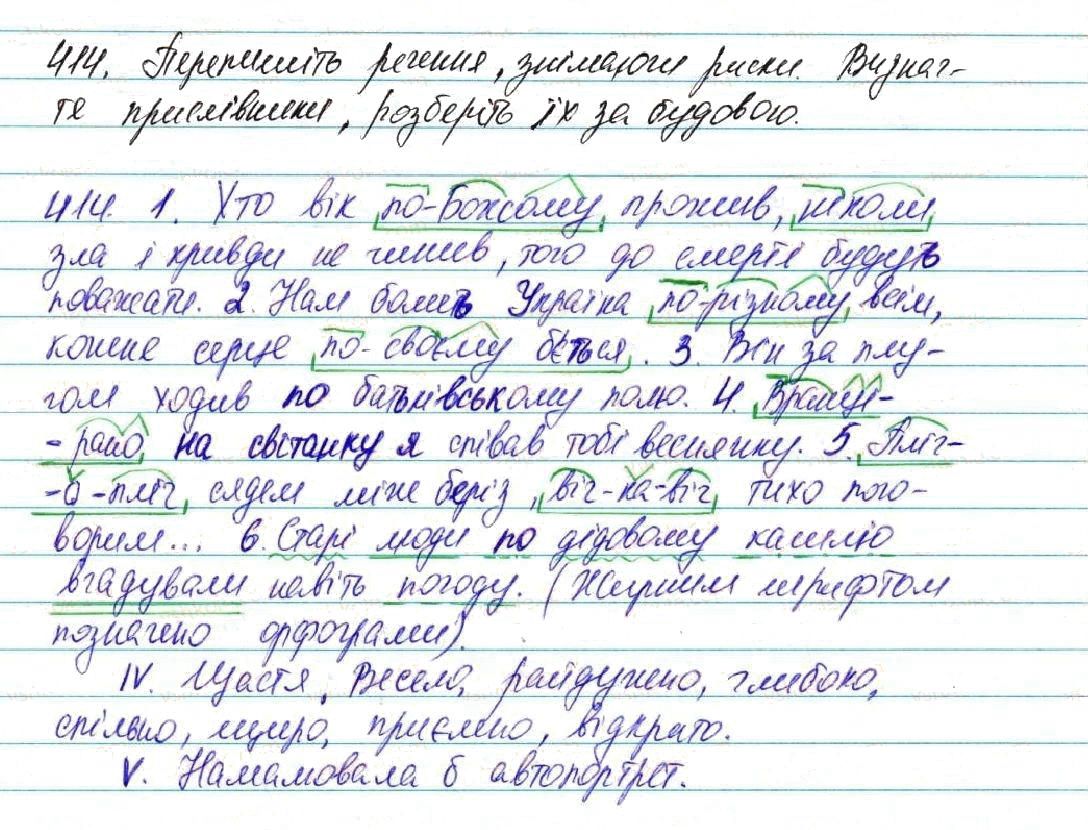 414. Перепишіть речення, знімаючи риски. Визнач-
те прислівники, розберіть їх за будовою.
414. 1. Хто вік по-Божому прожив, ніколи
зла і кривди не чинив, того до смерті будуть
поважати. 2. Нам болить Україна по-різному всім,
кожне серце по-своєму б'ється. 3. Він за плу-
гом ходив по батьківському полю. 4. Вранці-
-рано на світанку я співав тобі веснянку. 5. Пліч-
-о-пліч сядем між беріз, віч-на-віч тихо пого-
ворим... 6. Старі люди по дідовому кашлю
вгадували навіть погоду. (Жирним шрифтом
позначено орфограми).
IV. Щастя, Весело, райдужно, глибоко,
спільно, щиро, приємно, відкрито.
V. Намалювала б автопортрет.